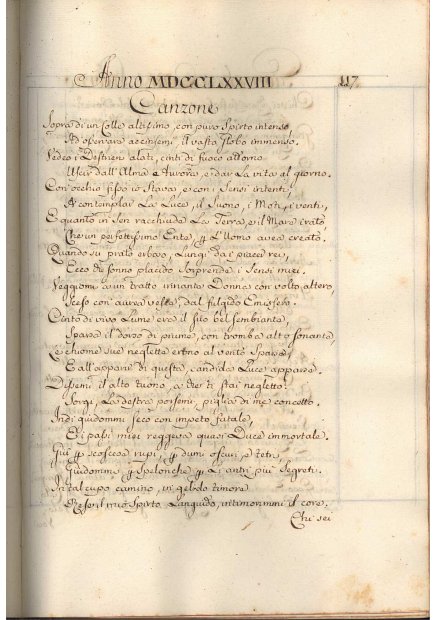 Anno MDCCLXXVIII 117
Canzone
Sopra di un Colle altissimo, con puro Spirto intenso,
Ad osservare accinsemi il vasto Globo immenso.
Vedeo i Destrieri alati, cinti di fuoco attorno
Uscir dall'Alma Aurora, e dar La vita al giorno.
Con occhio fisso io Stava, e con i Sensi intenti
A contemplar La Luce, il Suono, i Moti, i venti,
E quanto in Sen racchiude La Terra, e il Mare irato
Che un perfettissimo Ente, p L'Uomo avea creato.
Quando su prato erboso, Lungi dai piacer rei,
Ecco di Sonno placido Sorprende i Sensi miei.
Veggiomi a un tratto innante Donna con volto altero,
Scesa con aurea veste, dal fulgido Emisfero.
Cinto di vivo Lume era il Suo bel sembiante,
Sparso il dorso di piume, con tromba alto sonante,
Le chiome sue neglette al vento Sparse,
E all'apparir di questa, candida Luce apparse.
il alto tuono, a ti stai negletto
Sorgi, La destra porsemi, di me concetto.
Indi guidommi seco con impeto fatale,
E i passi miei reggeva quasi Duce immortale.
Qui p scoscese rupi, p dumi oscuri, e tetri
Guidommi, p Spelonche p Li antri piu Segreti.
In tal cupo camino, un gelido timore
Rese il mio Spirto Languido, intimorimmi il core.
Chi sei